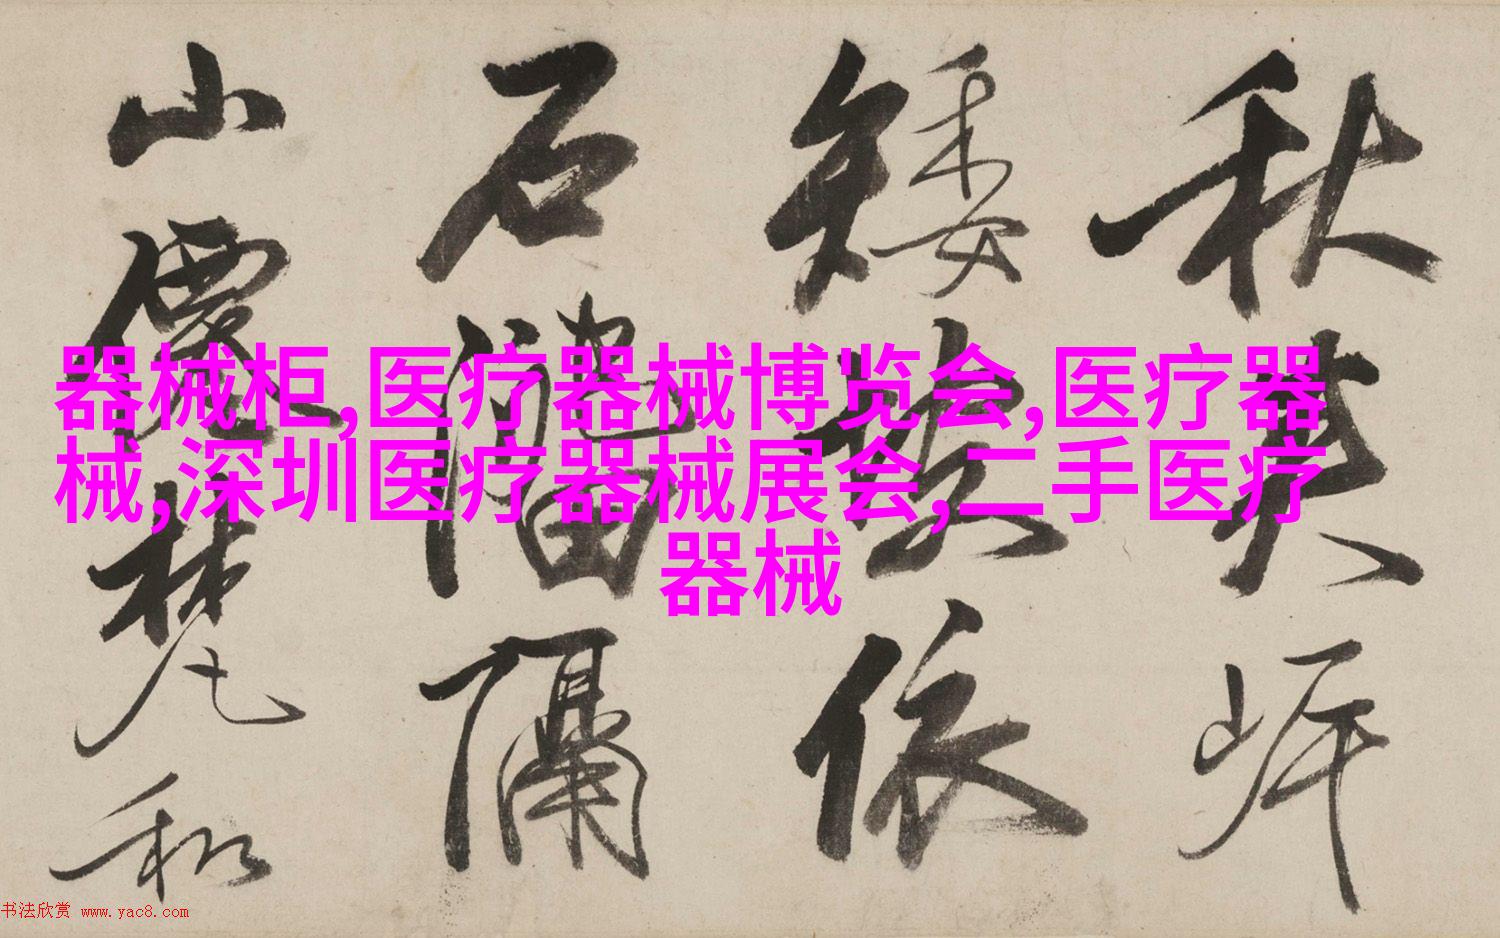 秋英
矮
依
石
隔
山
和
器械柜,医疗器械博览会,医疗器
械,深圳医疗器械展会,二手医疗
器械
书法欣赏 www.yac8.com